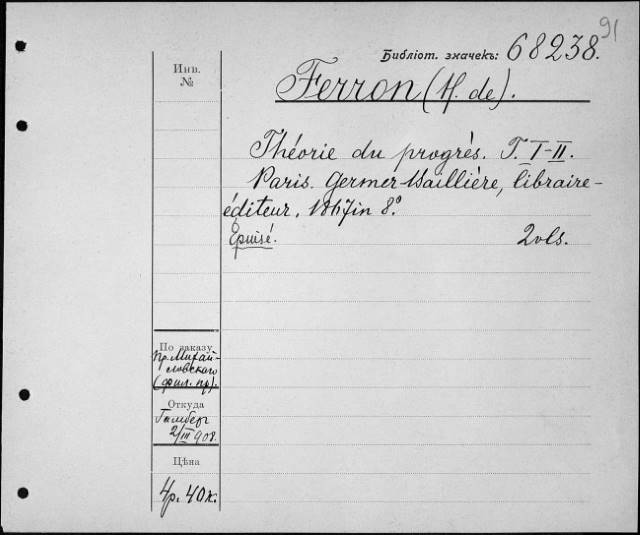 91
Библіот. значекъ: 68238.
Инв.
№
Ferron (H. de).
Théorie du progrès. T. I-II.
Paris. Germer-Baillière, libraire-
éditeur. 1867 in 8º
Épuisé. 2 vls.
По заказу
Пр. Михай-
ловскаго
(фил. пр).
Откуда
Гамбер
2/III 908.
Цѣна
4р. 40к.